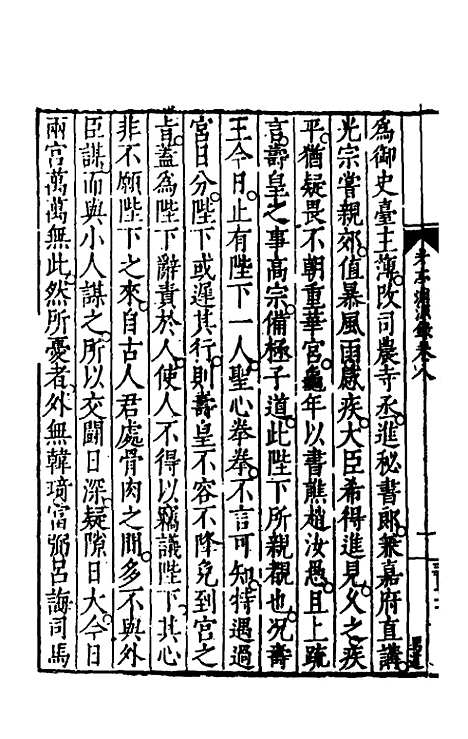 考亭淵源錄卷八
為御史臺主薄改司農寺丞進秘書郎兼嘉府直講
光宗嘗親郊值暴風雨感疾大臣希得進見久之疾
平猶疑畏不朝重華宮龜年以書熊趙汝愚且上疏
言壽皇之事高宗備極子道此陛下所親覩也况壽
王今日止有陛下一人聖心拳拳不言可知特遇過
宮日分陛下或遲其行則壽皇不容不降免到宮之
旨蓋為陛下辭責於人使人不得以竊議陛下其心
非不願陛下之來自古人君處骨肉之間多不與外
臣謀而與小人謀之所以交鬪日深疑隙日大今日
兩宮萬萬無此然所憂者外無韓琦富弼呂誨司馬